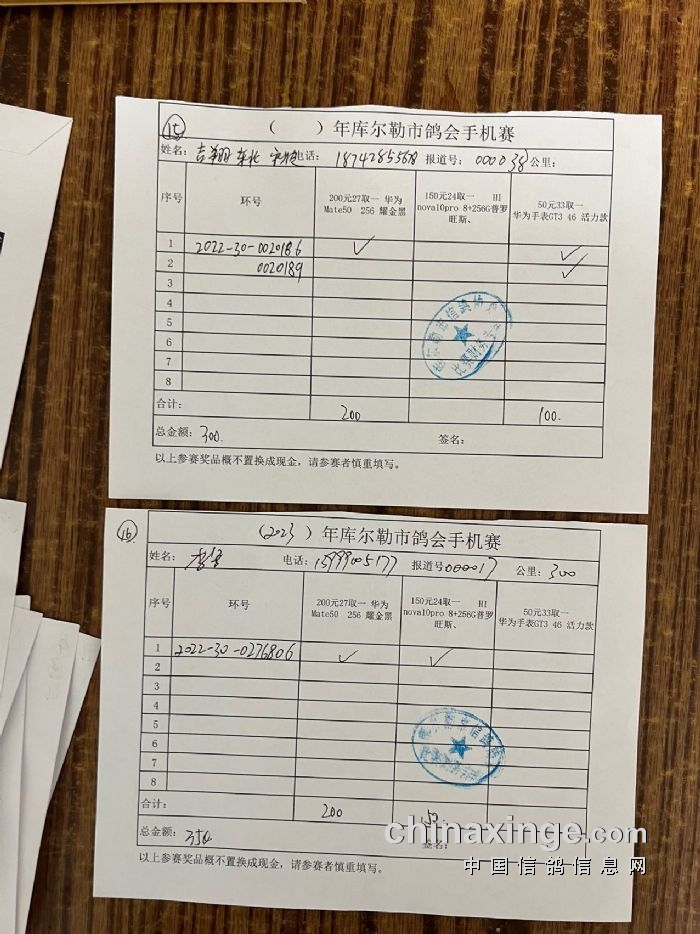 15
( ) 年库尔勒市鸽会手机赛
姓名: 吉翔 电话: 18742855568 报道号: 000038 公里:
序号 环号 200元27取一 华为Mate50 256 耀金黑 150元24取一 HI nova10pro 8+256G普罗旺斯、 50元33取一 华为手表GT3 46 活力款
1 2022-30-0020186 ✓ ✓
2 0020189 ✓
3
4
5
6
7
8
合计: 200 100.
总金额: 300. 签名:
以上参赛奖品概不置换成现金,请参赛者慎重填写。
16
(2023) 年库尔勒市鸽会手机赛
姓名: 电话: 15999005177 报道号 000017 公里: 300
序号 环号 200元27取一 华为Mate50 256 耀金黑 150元24取一 HI nova10pro 8+256G普罗旺斯、 50元33取一 华为手表GT3 46 活力款
1 2022-30-0276806 ✓ ✓
2
3
4
5
6
7
8
合计: 200
总金额: 签名:
以上参赛奖品概不置换成现金,请参赛者慎重填写。
chinaxinge.com
中国信鸽信息网